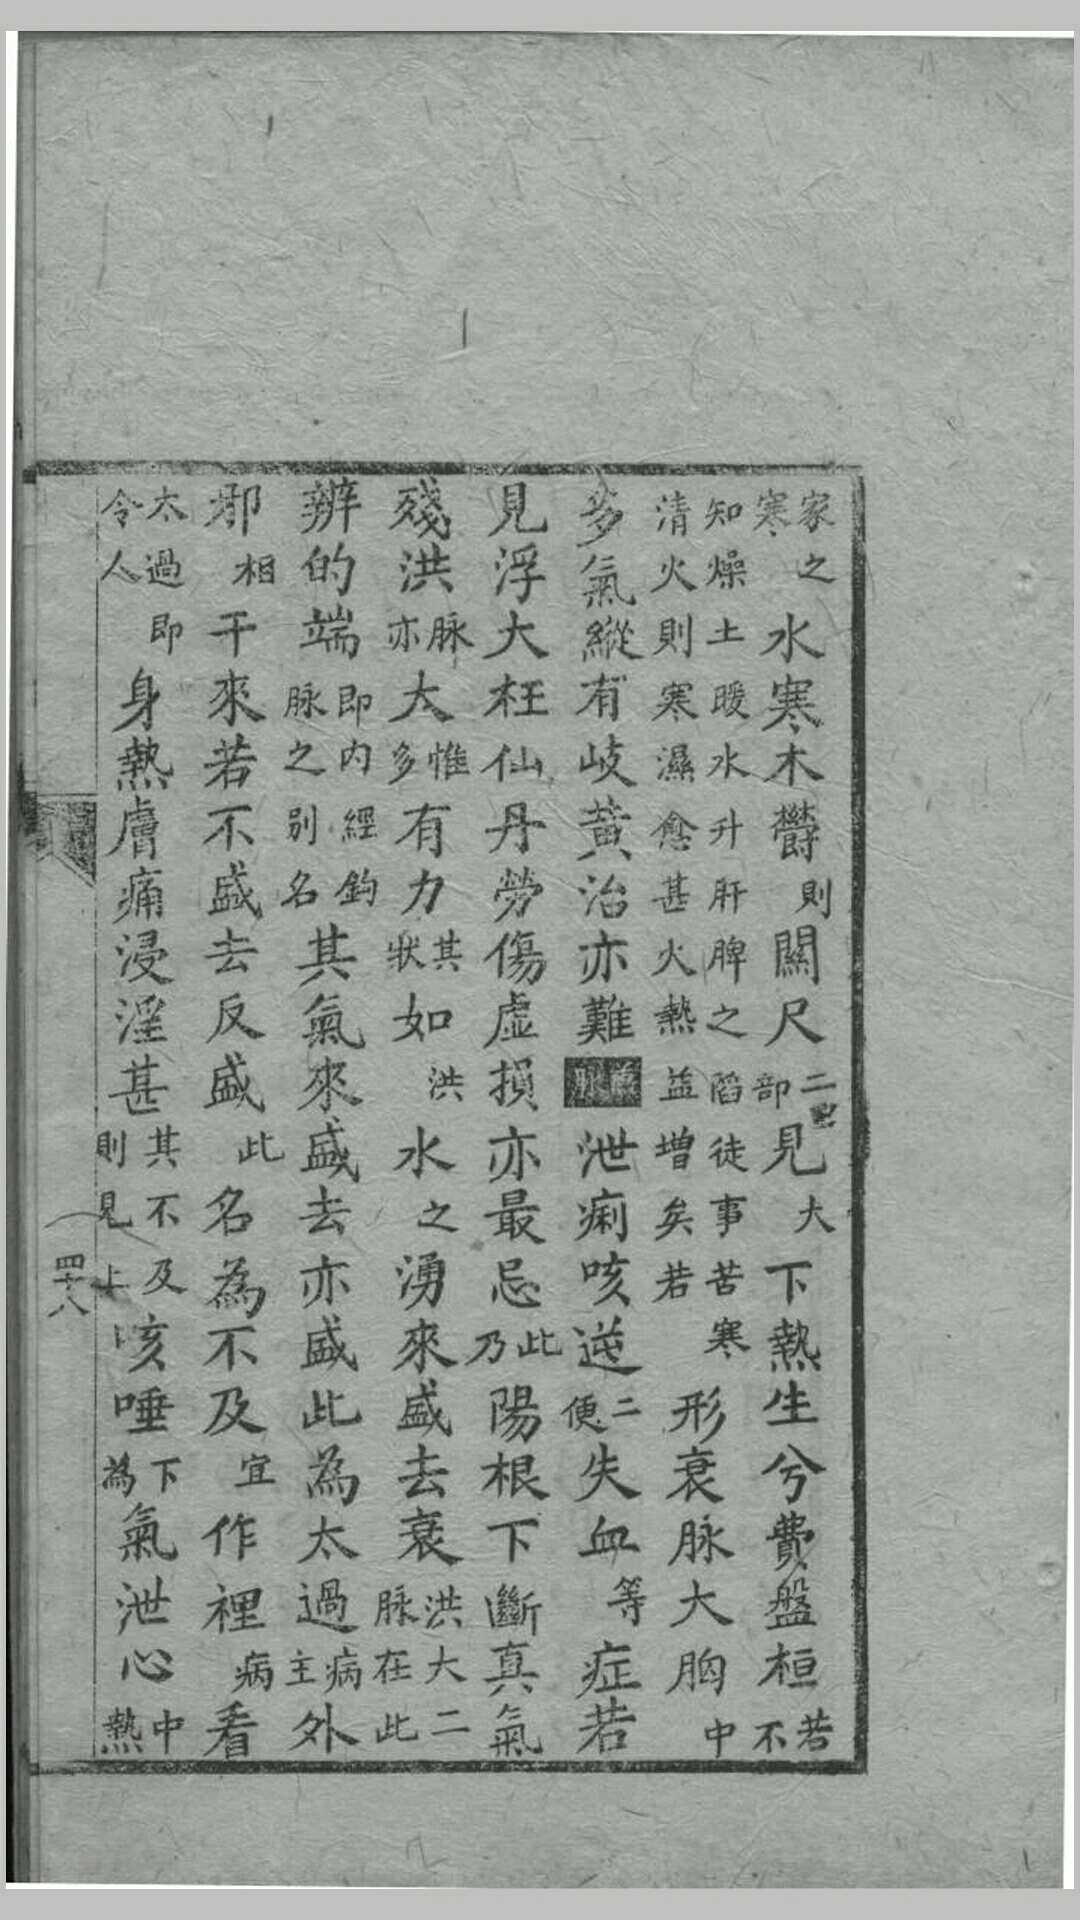 家之寒水寒木鬱則關尺二部見大下熱生兮費盤桓若不
知燥土暖水升肝脾之陷徒事苦寒清火則寒濕愈甚火熱益增矣若形衰脉大胸中
多氣縱有岐黃治亦難泄痢咳逆二便失血等症若
見浮大枉仙丹勞傷虛損亦最忌此乃陽根下斷真氣
殘洪脉亦大惟多有力其狀如洪水之湧來盛去衰洪大二脉在此
辨的端即内經鈎脉之別名其氣來盛去亦盛此為太過病主外
邪相干來若不盛去反盛此名為不及宜作裡病看
太過即令人身熱膚痛浸淫甚其不及則見上咳唾下為氣泄心中熱
四十八